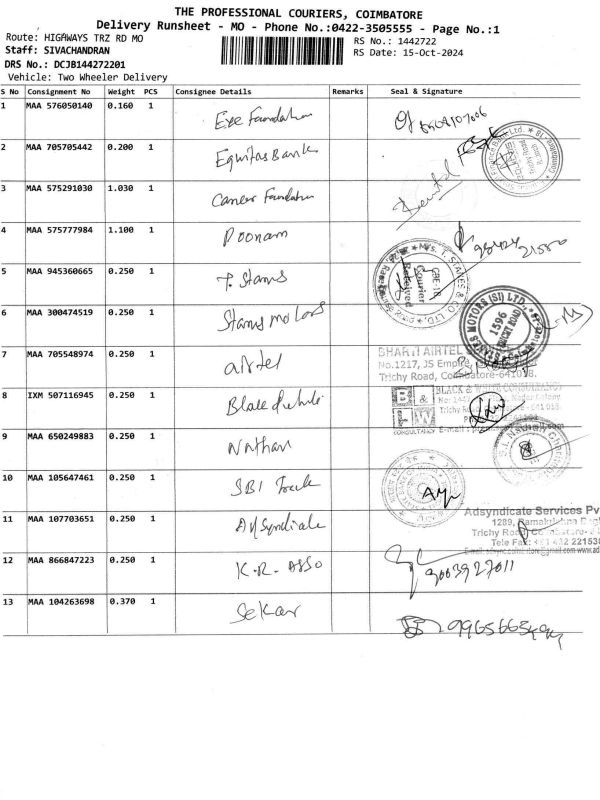 THE PROFESSIONAL COURIERS, COIMBATORE
Delivery Runsheet - MO - Phone No.:0422-3505555 - Page No.:1
Route: HIGHWAYS TRZ RD MO
RS No.: 1442722
Staff: SIVACHANDRAN
RS Date: 15-Oct-2024
DRS No.: DCJB144272201
Vehicle: Two Wheeler Delivery
S No Consignment No Weight PCS Consignee Details Remarks Seal & Signature
1 MAA 576050140 0.160 1 Eye Foundation
2 MAA 705705442 0.200 1 Equitas Bank
3 MAA 575291030 1.030 1 Cancer Foundation
4 MAA 575777984 1.100 1 Poonam
5 MAA 945360665 0.250 1 T. Stanes
6 MAA 300474519 0.250 1 Stanes motors
7 MAA 705548974 0.250 1 airtel
BHARTI AIRTEL
No.1217, JS Empire,
Trichy Road, Coimbatore-641018.
8 IXM 507116945 0.250 1 Black & white
BLACK & WHITE CONSULTANCY
B & W
CONSULTANCY
9 MAA 650249883 0.250 1 Nathan
10 MAA 105647461 0.250 1 SBI
11 MAA 107703651 0.250 1 Adsyndicate
Adsyndicate Services Pv
1289, Ramakrishna
Trichy Road
Tele Fax:
12 MAA 866847223 0.250 1 K.R. ASSO
13 MAA 104263698 0.370 1 Sekar
T. STANES & CO LTD.
Courier
Received
MOTORS (SI) LTD.
1596
TRICHY ROAD